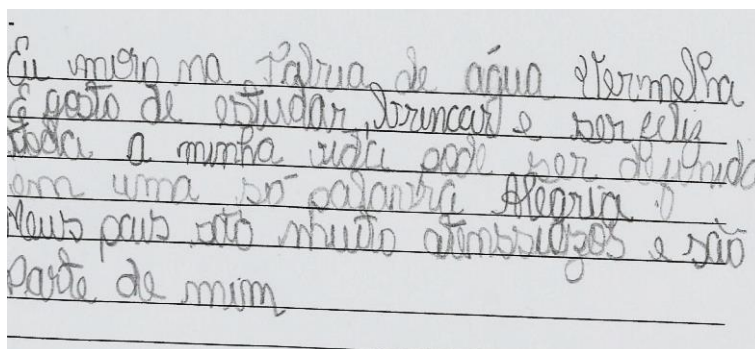 Eu moro na Fabrica de água Vermelha
E gosto de estudar, brincar e ser feliz
toda a minha vida pode ser definida
em uma só palavra Alegria.
Meus pais são muito atenssiozos e são
Parte de mim